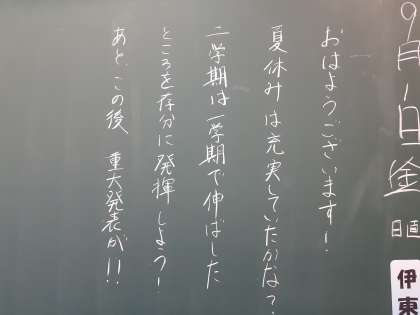 9月1日(金)
日直
伊東
おはようございます！
夏休みは充実していたかな？
二学期は一学期で伸ばした
ところを存分に発揮しよう！
あと、この後 重大発表が!!